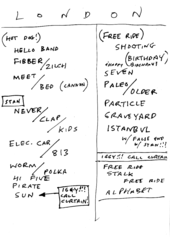 LONDON
(HOT DOG!)
HELLO BAND
FIBBER/
ZILCH
MEET/
BED (CANNON)
STAN
NEVER/
CLAP/
KIDS
ELEC. CAR/
813
WORM/
POLKA
HI FIVE
PIRATE
SUN
IGGY!!!
CALL
CURTAIN
(FREE RIDE)
SHOOTING
(BIRTHDAY)
SEVEN
PALEO/
OLDER
PARTICLE
GRAVEYARD
ISTANBUL
W/ FALSE END
W/ STAN!!!
IGGY!!! CALL CURTAIN
FREE RIDE
STALK
FREE RIDE
ALPHABET